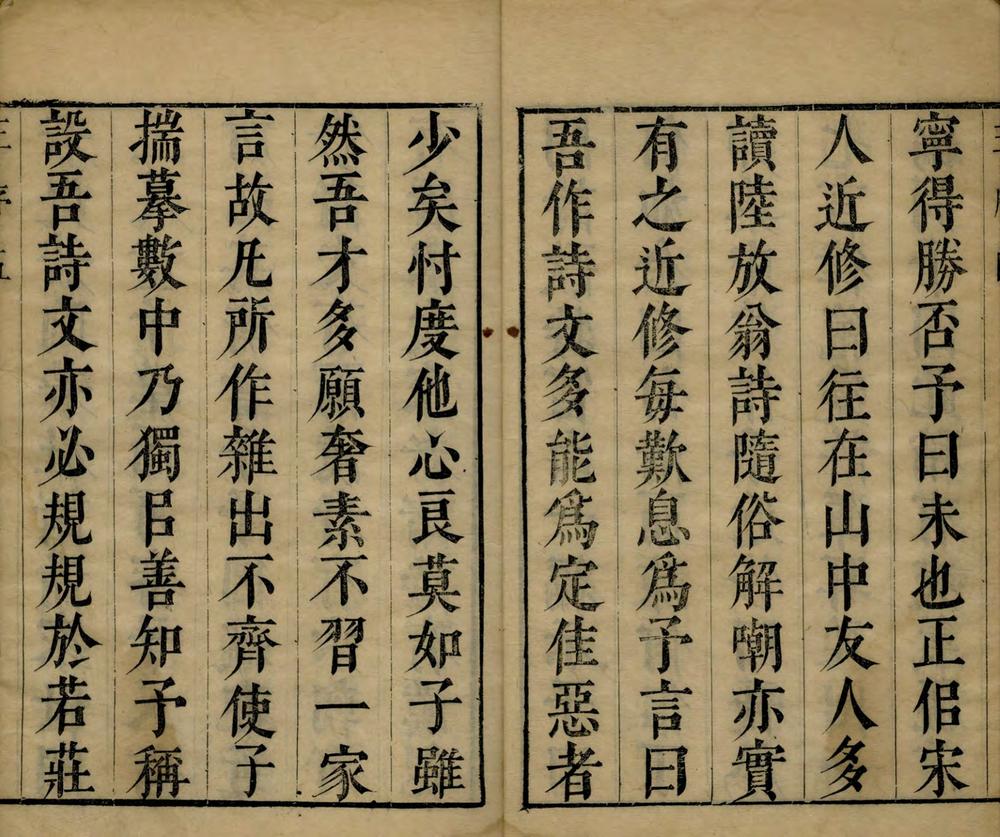 寧得勝否予曰未也正佀宋
人近修曰往在山中友人多
讀陸放翁詩隨俗解嘲亦實
有之近修每歎息爲予言曰
吾作詩文多能爲定佳惡者
少矣忖度他心良莫如子雖
然吾才多願奢素不習一家
言故凡所作雜出不齊使子
揣摹數中乃獨㠯善知予稱
設吾詩文亦必規規於若莊